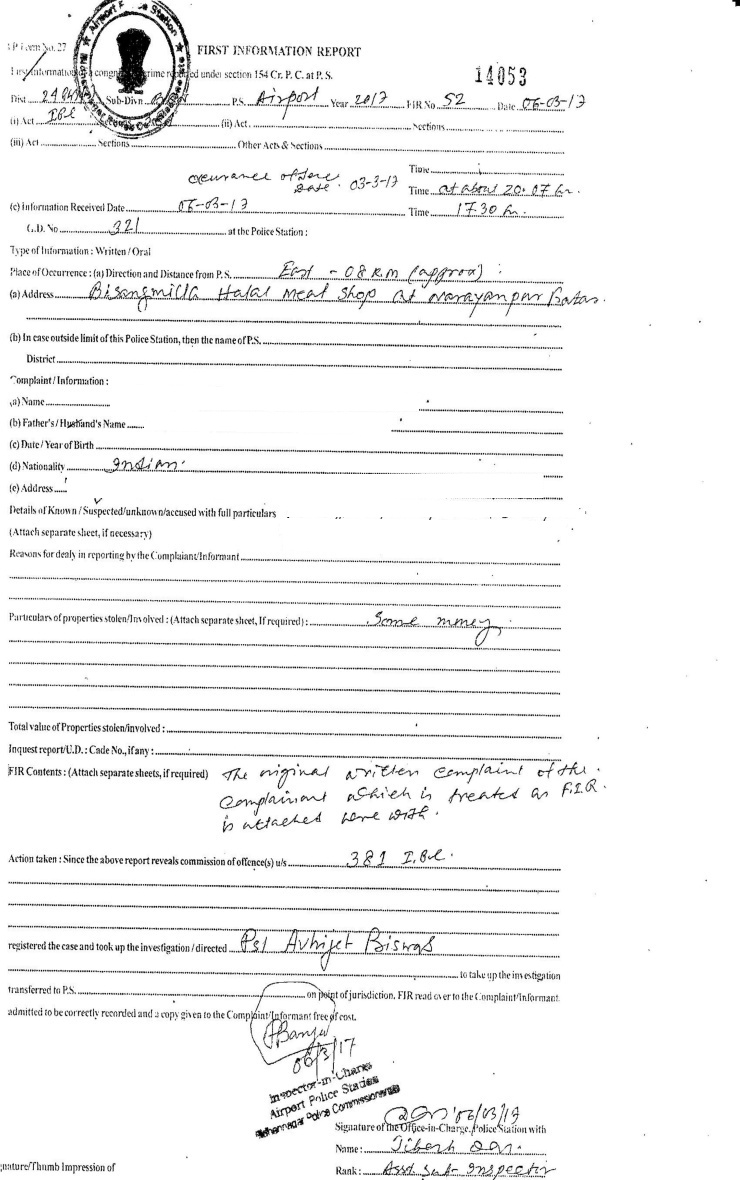 P Form No. 27
FIRST INFORMATION REPORT
First Information of a congnizable crime reported under section 154 Cr. P. C. at P. S.
14053
Dist 24 Sub-Divn P.S. Airport Year 2017 FIR No. 52 Date 06-03-17
(i) Act IPC Sections (ii) Act Sections
(iii) Act Sections Other Acts & Sections
Time
Date 03-3-17 Time at about 20:07 hr.
(c) Information Received Date 06-03-17 Time 17.30 hr.
G.D. No 321 at the Police Station :
Type of Information : Written / Oral
Place of Occurrence : (a) Direction and Distance from P. S. East - 08 K.m (approx)
(a) Address Halal meat shop at Narayanpur
(b) In case outside limit of this Police Station, then the name of P.S.
District
Complaint / Information :
(a) Name
(b) Father's / Husband's Name
(c) Date / Year of Birth
(d) Nationality Indian
(e) Address
Details of Known / Suspected/unknown/accused with full particulars
(Attach separate sheet, if necessary)
Reasons for dealy in reporting by the Complaiant/Informant
Particulars of properties stolen/Involved : (Attach separate sheet, If required) : Some money
Total value of Properties stolen/involved :
Inquest report/U.D. : Cade No., if any :
FIR Contents : (Attach separate sheets, if required) The original written complaint of the
complainant which is treated as F.I.R.
is attached here with.
Action taken : Since the above report reveals commission of offence(s) u/s 381 I.P.C.
registered the case and took up the investigation / directed PSI Avhijet Biswas
to take up the investigation
transferred to P.S. on point of jurisdiction. FIR read over to the Complaint/Informant.
admitted to be correctly recorded and a copy given to the Complaint/Informant free of cost.
06/3/17
Inspector-in-Charge
Airport Police Station
Police Commissionerate
06/03/17
Signature of the Office-in-Charge, Police Station with
Name :
Rank : Asst. Sub-Inspector
nature/Thumb Impression of